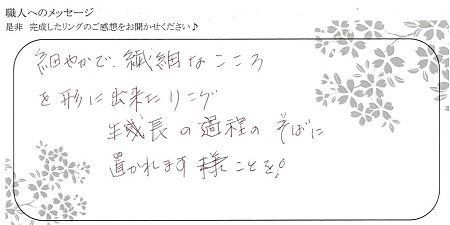 職人へのメッセージ
是非 完成したリングのご感想をお聞かせください♪
細やかで、繊細なこころ
を形に出来たリング
成長の過程のそばに
置かれます様ことを。